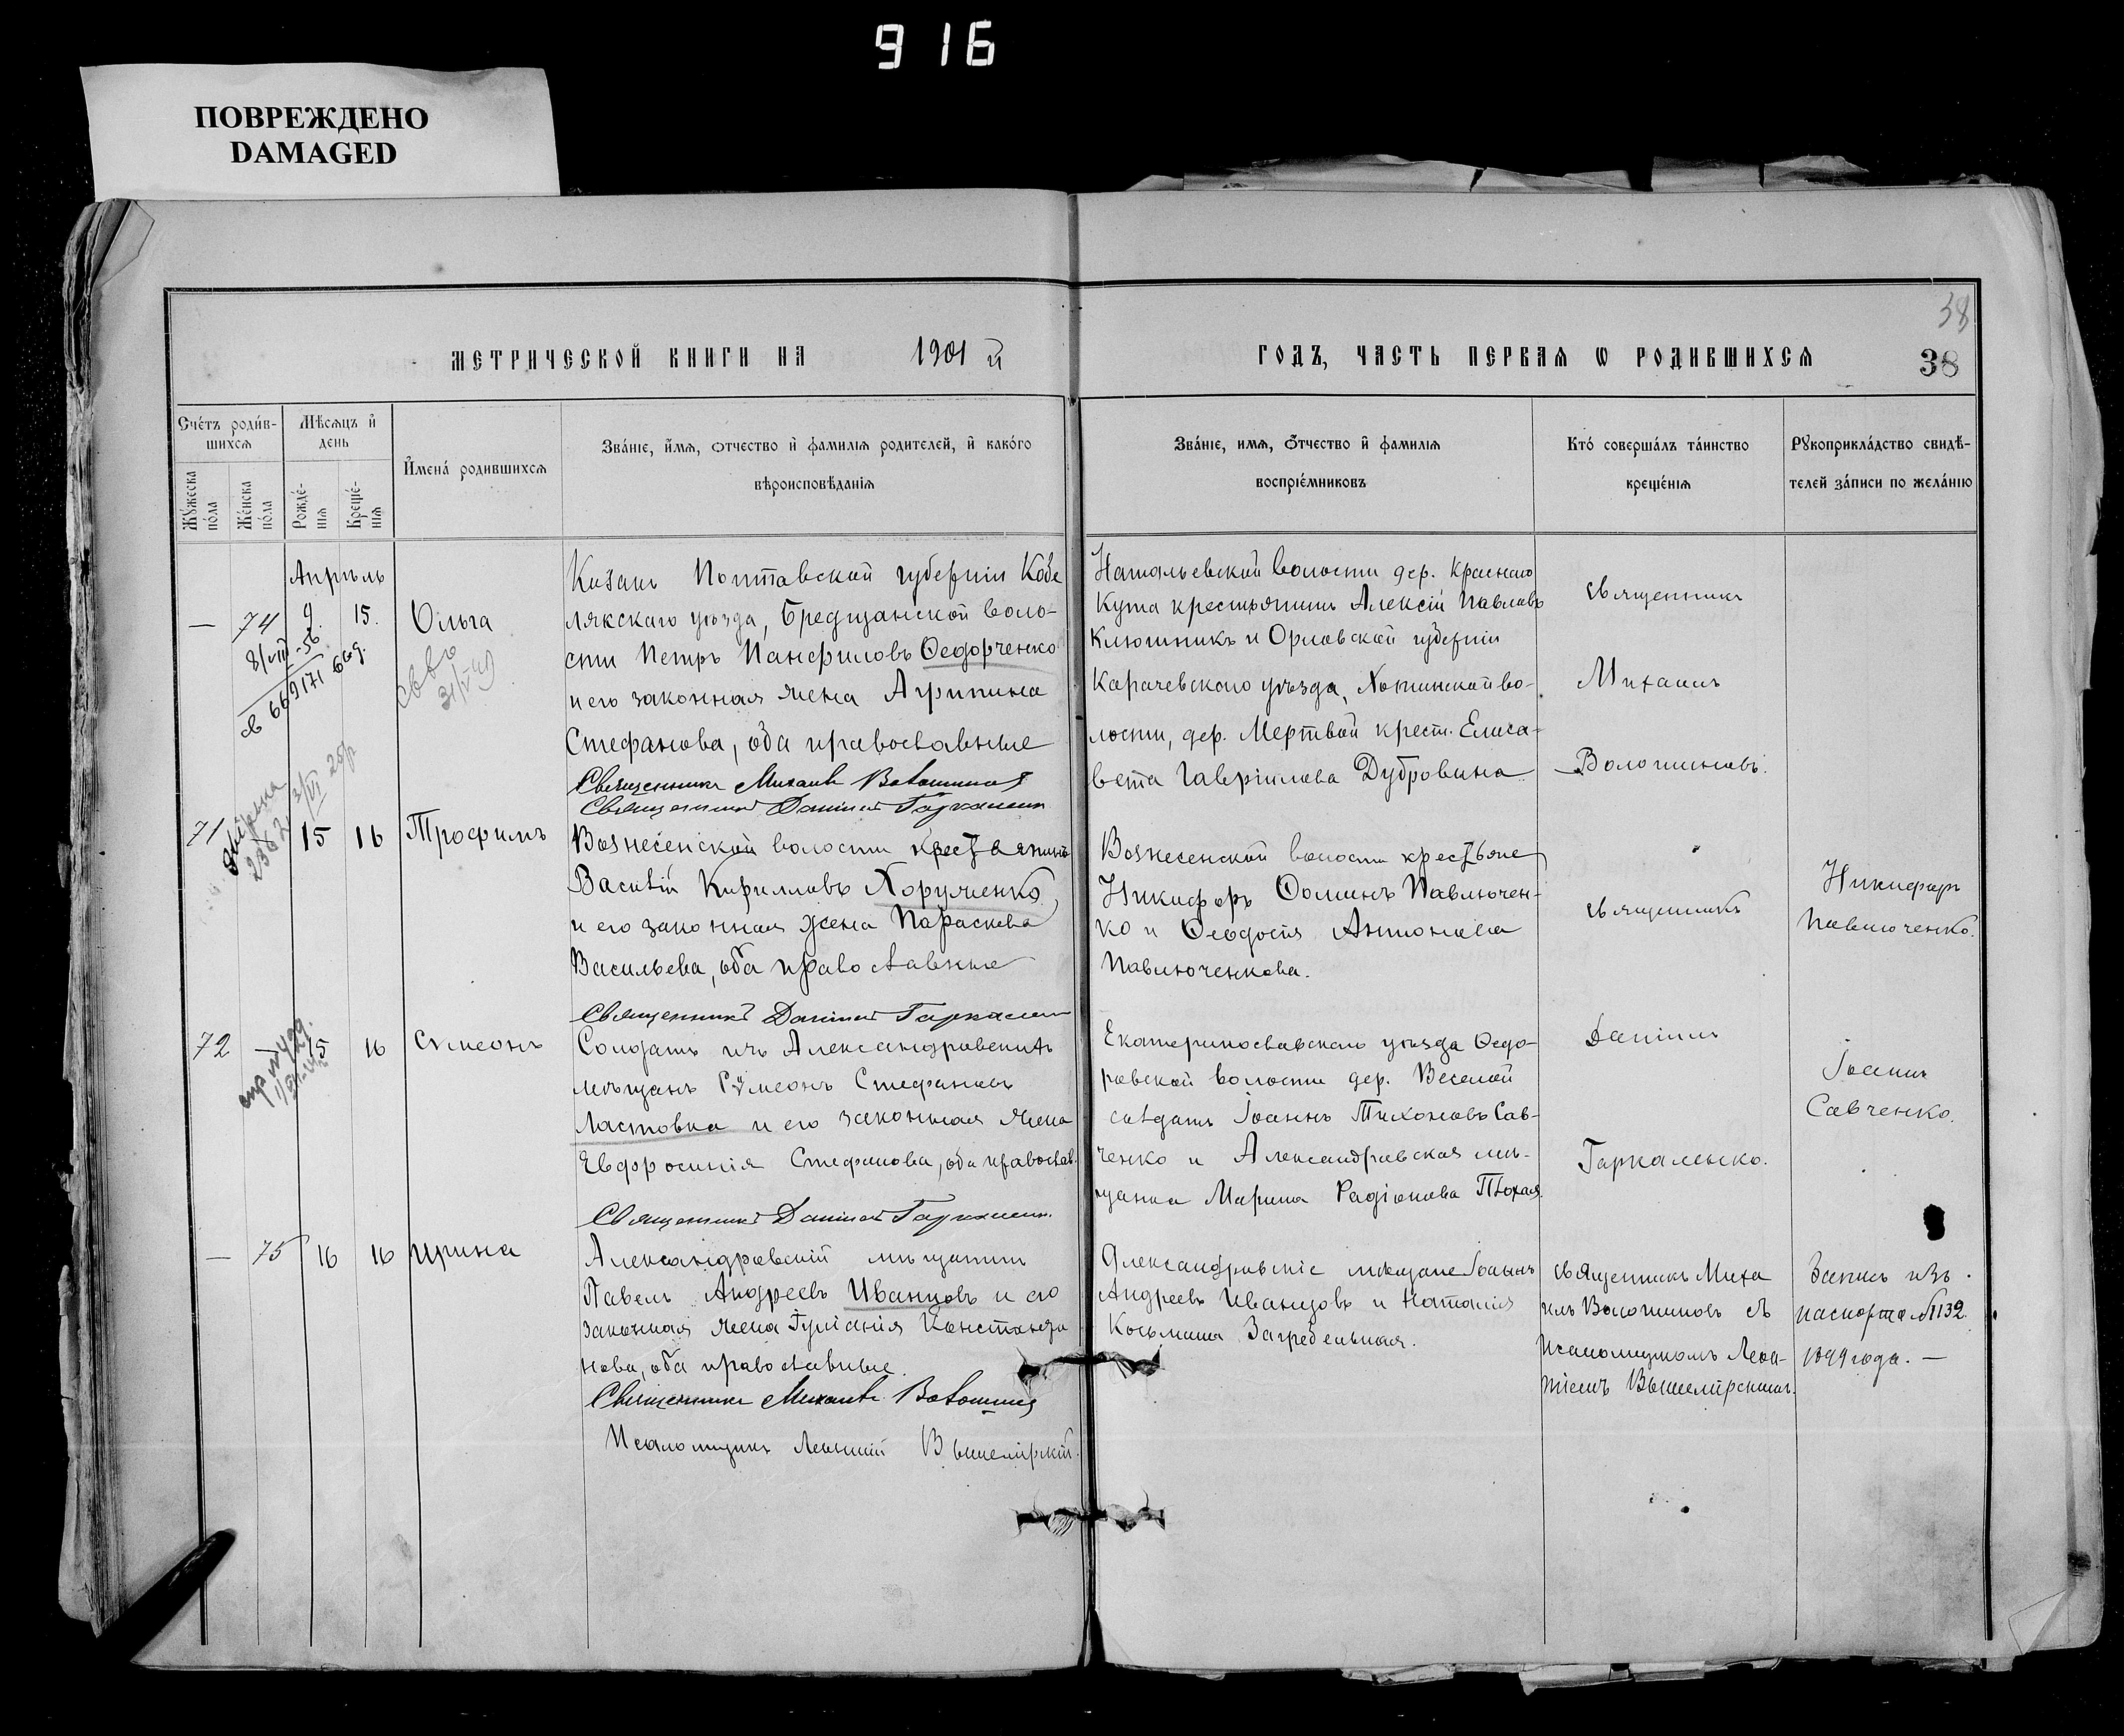 916
ПОВРЕЖДЕНО
DAMAGED
38
МЕТРИЧЕСКОЙ КНИГИ НА 1901 й ГОДЪ, ЧАСТЬ ПЕРВАЯ Ѡ РОДИВШИХСЯ 38
Счетъ родив-
шихся
Мѣсяцъ и
день
Мужеска
пола
Женска
пола
Рожде-
нія
Креще-
нія
Имена родившихся
Званіе, имя, отчество и фамилія родителей, и какого
вѣроисповѣданія
Званіе, имя, отчество и фамилія
воспріемниковъ
Кто совершалъ таинство
крещенія
Рукоприкладство свидѣ-
телей записи по желанію
Апрѣль
— 74 9. 15. Ольга
8/VIII-56
св 669171
31/V
Козакъ Полтавской губерніи Кобе
лякскаго уѣзда, Бредщанской воло-
сти Петръ Панфиловъ Ѳедорченко
и его законная жена Агрипина
Стефанова, оба православные
Священникъ Михаилъ Волошиновъ
Священникъ Даніилъ Гаркаленко
Натальевской волости дер. Краснаго
Кута крестьянинъ Алексій Павловъ
Клюшникъ и Орловской губерніи
Карачевскаго уѣзда, Хотинской во-
лости, дер. Мертвой крест. Елиса-
вета Гавріилова Дубровина
священникъ
Михаилъ
Волошиновъ.
71 15 16 Трофимъ
2362
Вознесенской волости крестьянинъ
Василій Кирилловъ Хорунженко
и его законная жена Параскева
Васильева, оба православные
Священникъ Даніилъ Гаркаленко
Вознесенской волости крестьяне
Никифоръ Ѳоминъ Павлючен-
ко и Ѳеодосія Антонова
Павлюченкова.
священникъ
Никифоръ
Павлюченко.
72 — 15 16 Сѵмеонъ
Солдатъ изъ Александровскихъ
мѣщанъ Сѵмеонъ Стефановъ
Ластовка и его законная жена
Евфросинія Стефанова, оба православ.
Священникъ Даніилъ Гаркаленко
Екатеринославскаго уѣзда Ѳедо-
ровской волости дер. Веселой
солдатъ Іоаннъ Тихоновъ Сав-
ченко и Александровская мѣ-
щанка Марина Радіонова
Даніилъ
Гаркаленко.
Іоаннъ
Савченко.
— 75 16 16 Ирина
Александровскій мѣщанинъ
Павелъ Андреевъ Иванцовъ и его
законная жена Іуліанія Константи
нова, оба православные.
Священникъ Михаилъ Волошиновъ
Псаломщикъ Леонтій Вышемірскій.
Александровскіе мѣщане Іоаннъ
Андреевъ Иванцовъ и Наталія
Косьмина Загребельная.
священникъ Миха
илъ Волошиновъ съ
псаломщикомъ Леон-
тіемъ Вышемірскимъ.
Запись изъ
паспорта № 1132
1899 года. —